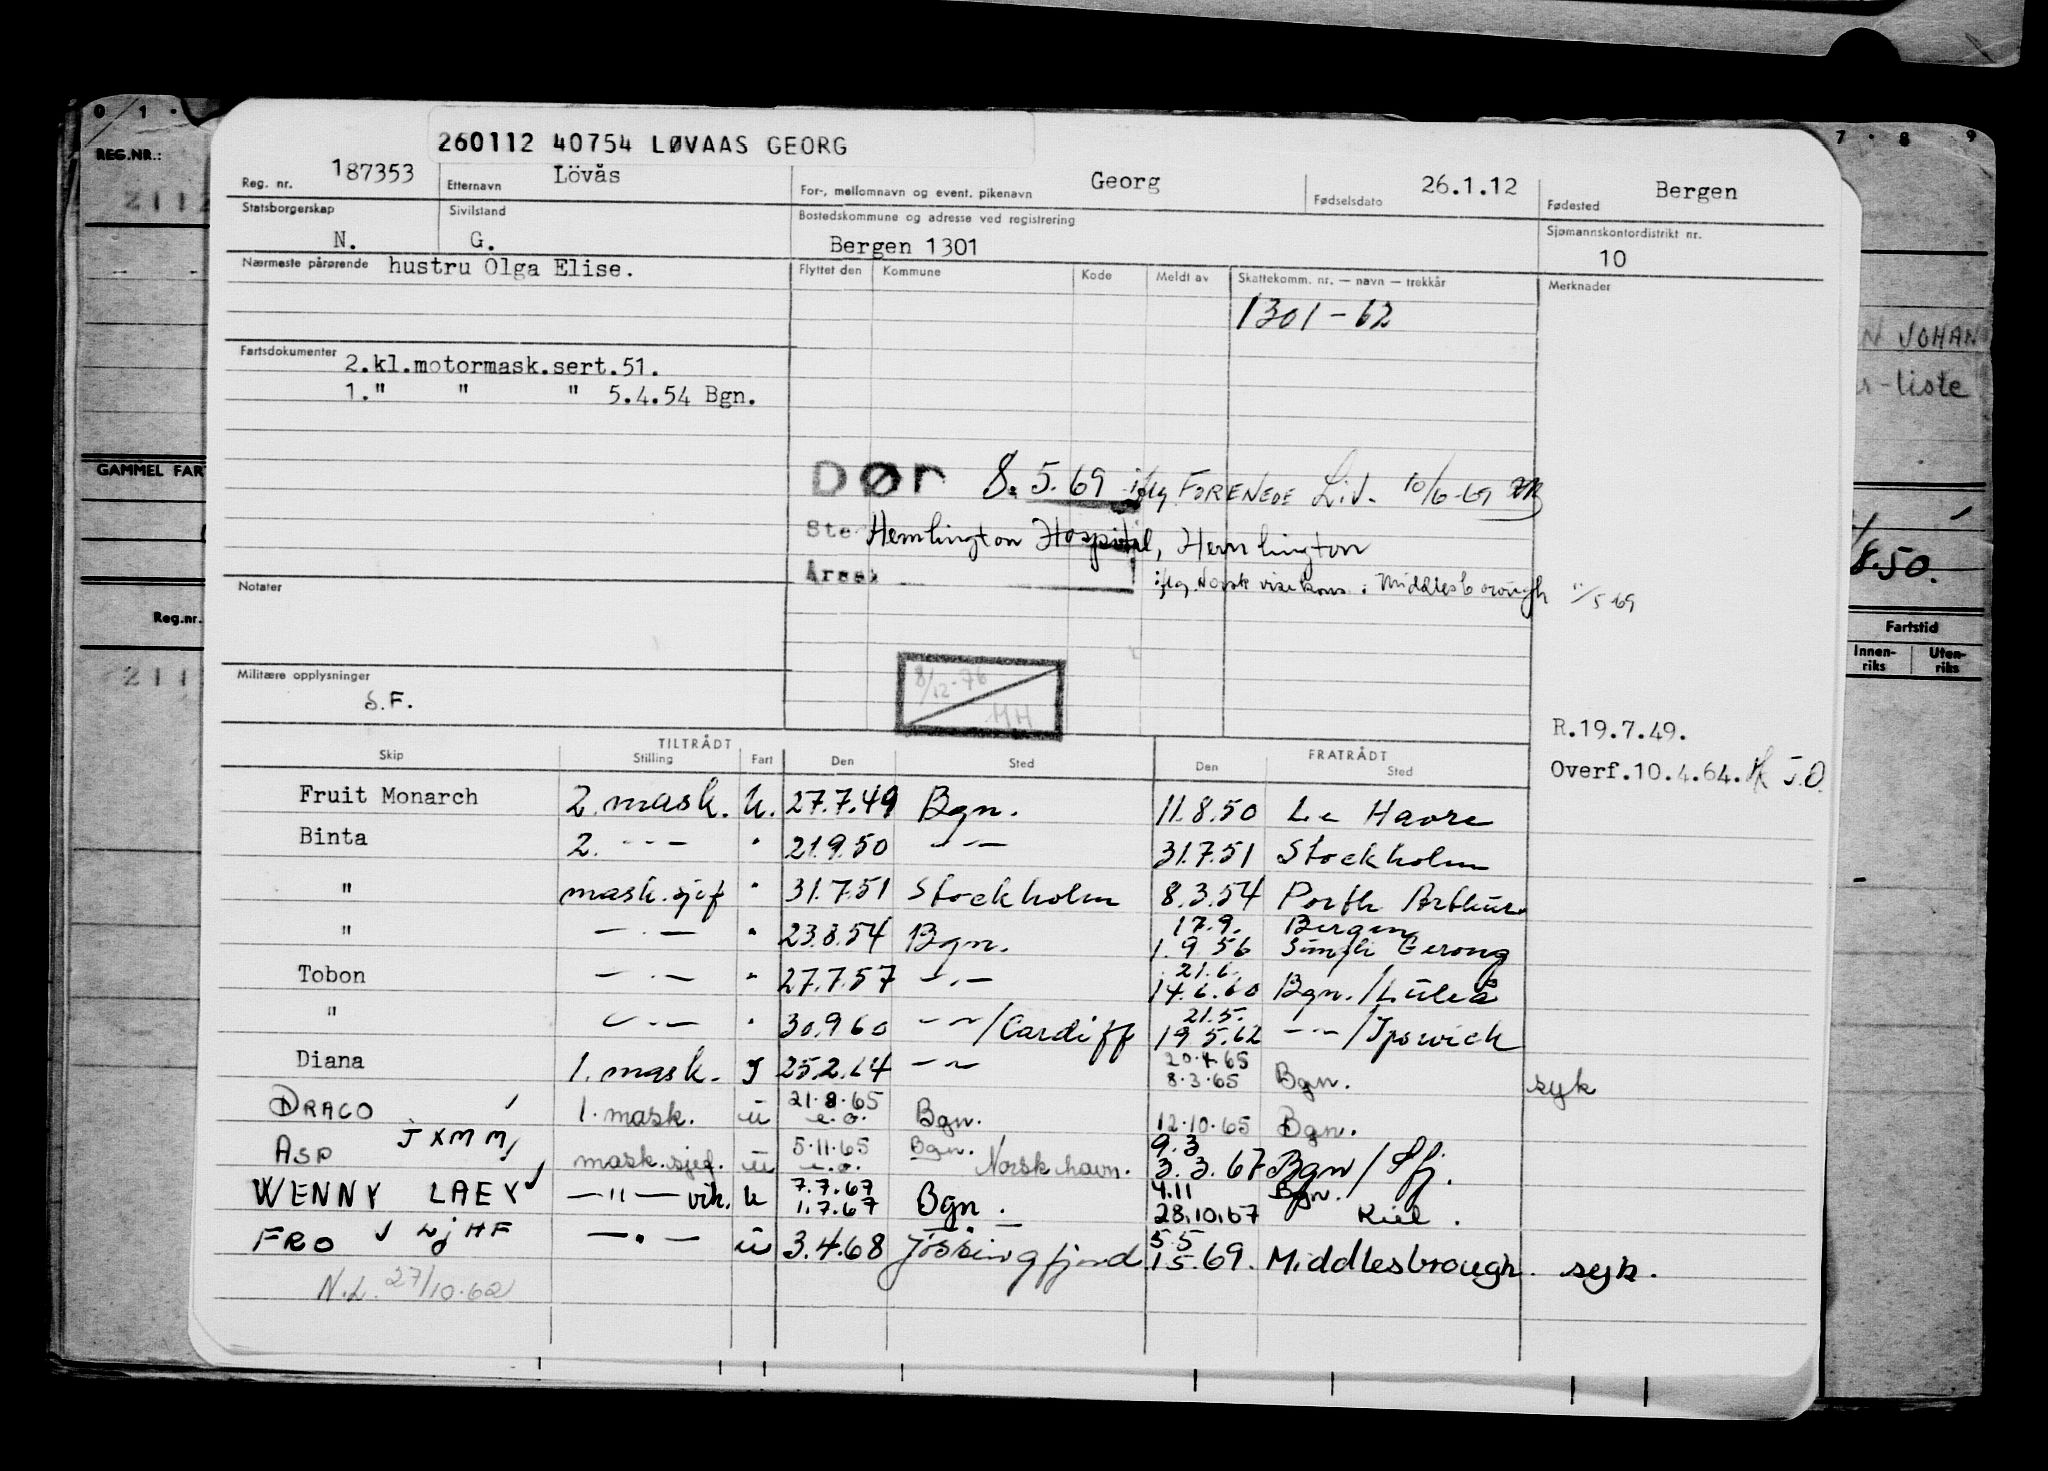 0 1 ·
7 · 8 9
REG.NR.:
260112 40754 LØVAAS GEORG
Reg. nr. 187353 Etternavn Lövås For-, mellomnavn og event. pikenavn Georg Fødselsdato 26.1.12 Fødested Bergen
Statsborgerskap N. Sivilstand G. Bostedskommune og adresse ved registrering Bergen 1301 Sjømannskontordistrikt nr. 10
Nærmeste pårørende hustru Olga Elise. Flyttet den Kommune Kode Meldt av Skattekomm. nr. — navn — trekkår Merknader
1301-62
N JOHAN
-liste
Fartsdokumenter 2.kl.motormask.sert.51.
1." " " 5.4.54 Bgn.
GAMMEL FAR
DØr 8.5.69 iflg FORENEDE Liv. 10/6-69
Ste Hemlington Hospital, Hemlington
Årsak iflg. Norsk visekons i Middlesborough 11/5 69
8.50.
Notater
Reg.nr.
Fartstid
Innen-riks Uten-riks
211
Militære opplysninger S.F.
8/12-76
HH
R.19.7.49.
Overf.10.4.64. J.O.
TILTRÅDT FRATRÅDT
Skip Stilling Fart Den Sted Den Sted
Fruit Monarch 2. mask. U. 27.7.49 Bgn. 11.8.50 Le Havre
Binta 2. - - - " 21.9.50 — " — 31.7.51 Stockholm
" mask.sjef " 31.7.51 Stockholm 8.3.54 Porth Arthur
" — " — " 23.8.54 Bgn. 17.9. 1.9 56 Bergen Sungli Gerong
Tobon — " — " 27.7.57 — " — 21.6. 14.6.60 Bgn./Luleå
" — " — " 30.9.60 — " —/Cardiff 21.5. 19 5.62 — " —/Ipswich
Diana 1. mask. I 25.2.64 — " — 20.4.65 8.3.65 Bgn. syk
DRACO 1. mask. u 21.8.65 e.o. Bgn. 12.10.65 Bgn.
ASP JXMM mask.sjef. u 5.11.65 e.o. Bgn. Norsk havn. 9.3 3.3.67 Bgn / Sfj.
WENNY LAEY — " — vik. u 7.7.67 1.7.67 Bgn. 4.11 28.10.67 Bgn. Kiel.
FRO LJHF — " — u 3.4.68 Jössingfjord 5.5 1 5.69. Middlesbrough. syk.
N.L. 27/10.62